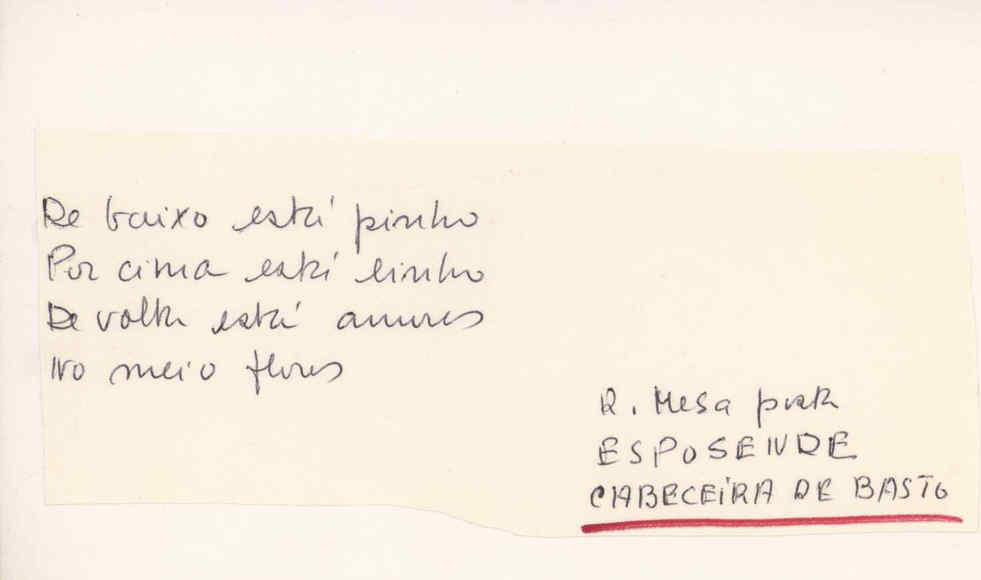 De baixo está pinho
Por cima está linho
De volta está amores
No meio flores
R. Mesa posta
ESPOSENDE
CABECEIRA DE BASTO